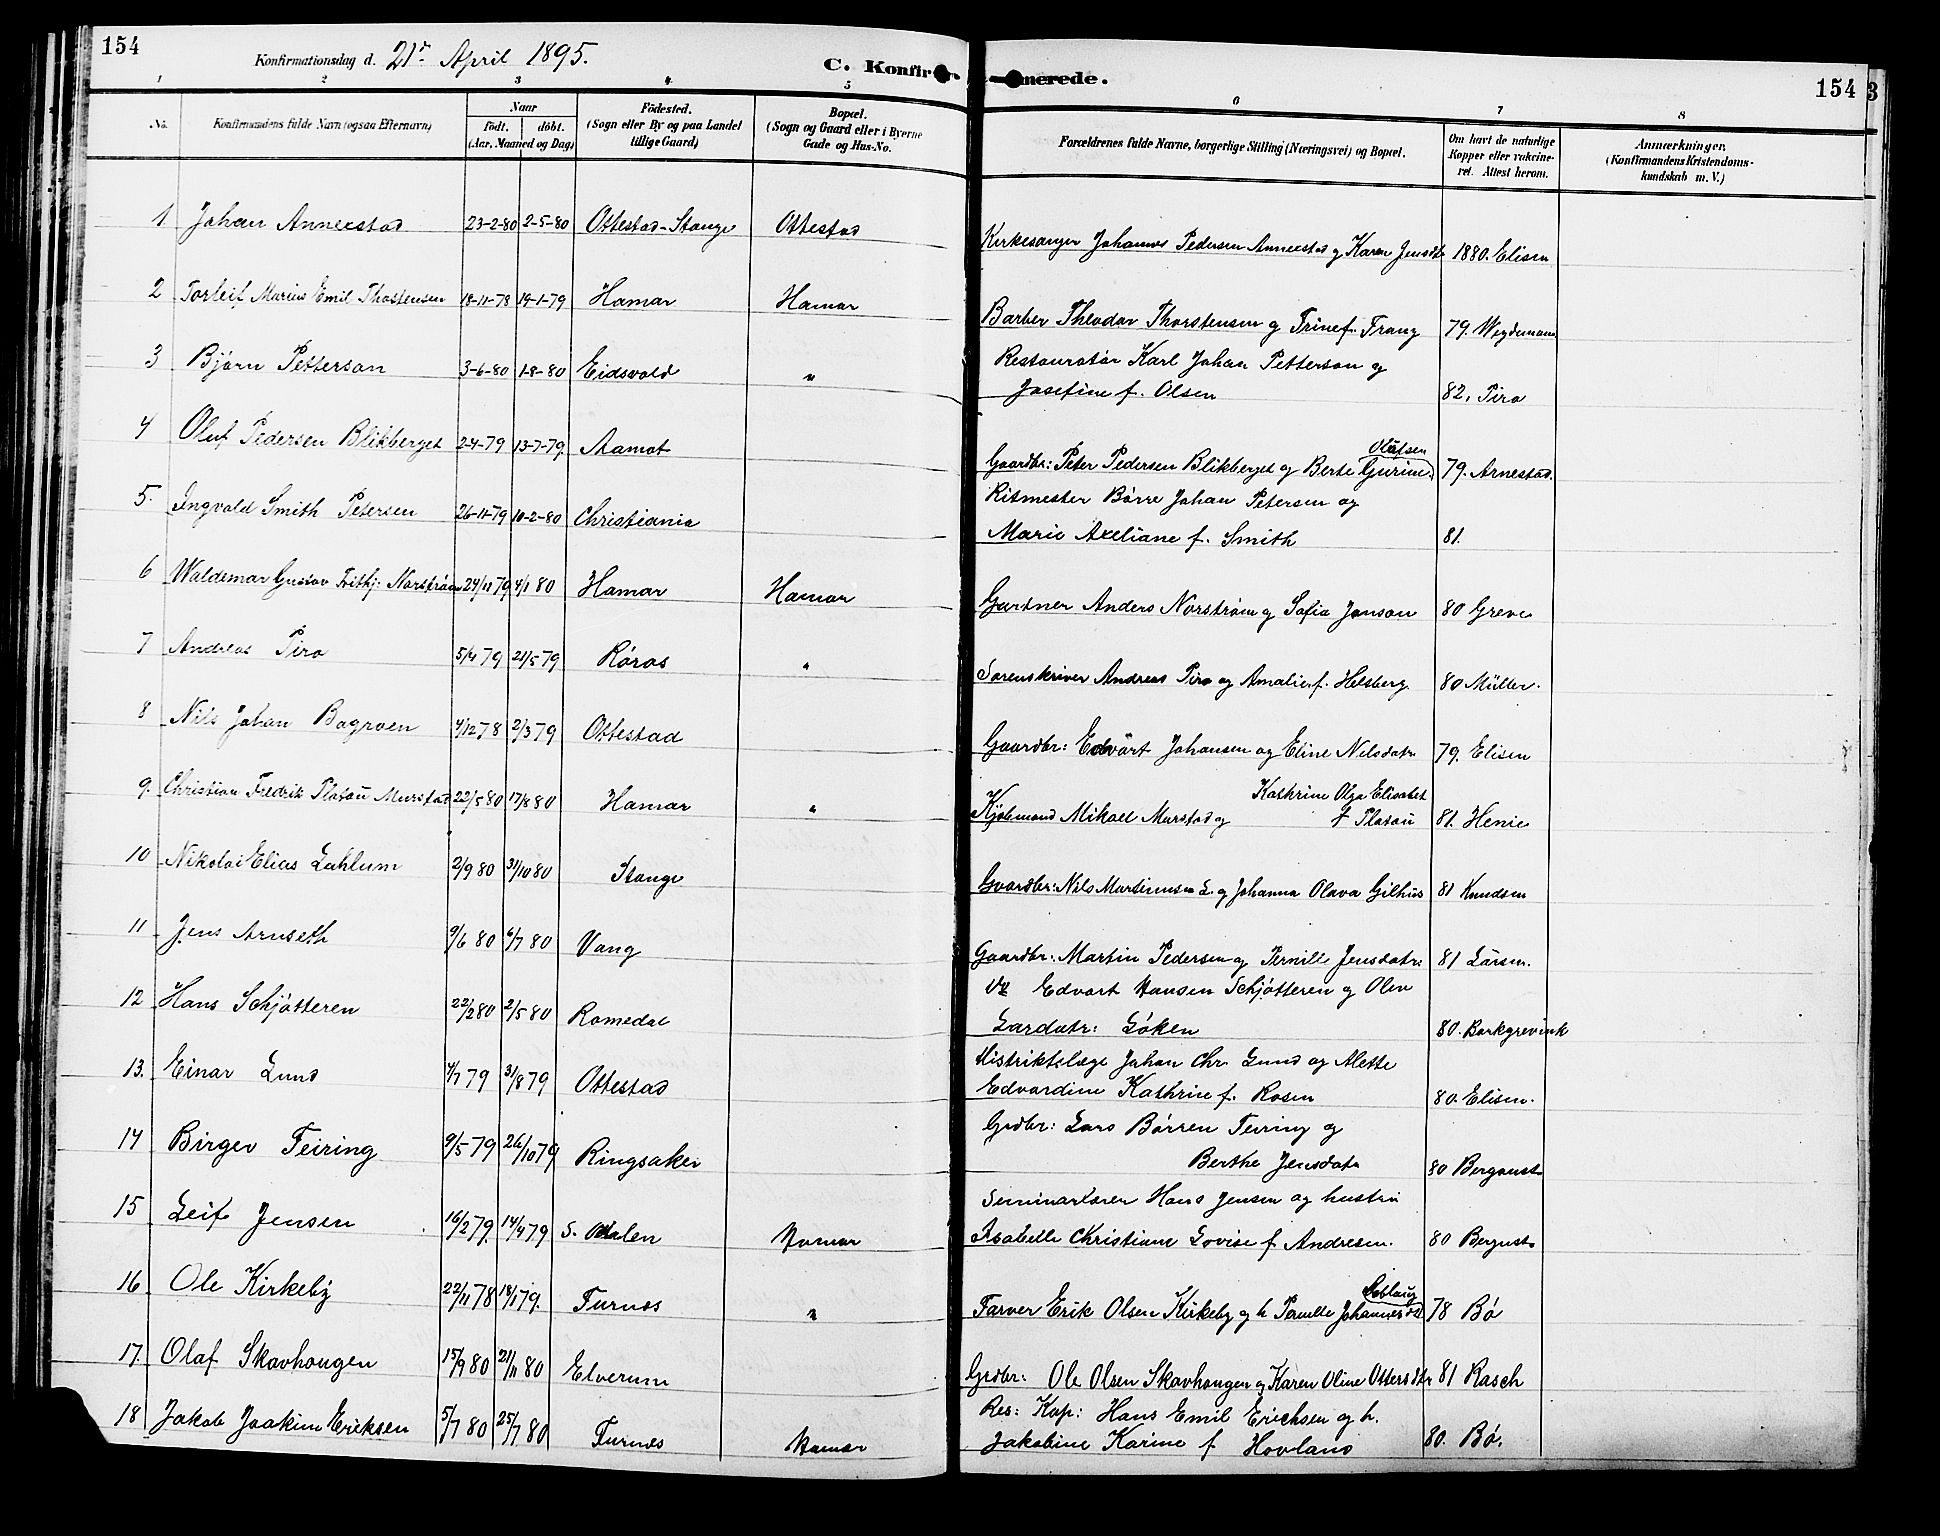 154
Konfirmationsdag d. 21de April 1895.
C. Konfir
merede.
154
3
1 2 3 4 5 6 7 8
No. Konfirmandens fulde Navn (ogsaa Efternavn)
Naar
født. døbt.
(Aar, Maaned og Dag)
Fødested.
(Sogn eller By og paa Landet
tillige Gaard)
Bopæl.
(Sogn og Gaard eller i Byerne
Gade og Hus-No.
Forældrenes fulde Navne, borgerlige Stilling (Næringsvei) og Bopæl.
Om havt de naturlige
Kopper eller vakcine-
ret. Attest herom.
Anmærkninger.
(Konfirmandens Kristendoms-
kundskab m. V.)
1 Johan Annexstad 23-2-80 2-5-80 Ottestad-Stange Ottestad Kirkesanger Johannes Pedersen Annexstad g Karen Jensdtr 1880. Elisen
2 Torleif Marius Emil Thostensen 18-11-78 19-1-79 Hamar Hamar Barber Theodor Thorstensen g Trine f. Franz 79. Weydemann
3 Bjørn Petterson 3-6-80 1-8-80 Eidsvold " Restauratør Karl Johan Petterson og
Josefine f. Olsen 82. Piro
4 Oluf Pedersen Blikberget 2-4-79 13-7-79. Aamot Gaardbr: Peter Pedersen Blikberget og Berte Gurine Olufsen 79. Arnestad.
5. Ingvald Smith Petersen 26-11-79 10-2-80 Christiania Ritmester Børre Johan Petersen og
Marie Axeliane f. Smith 81.
6 Waldemar Gustav Frithj: Norstrøm 24/11 79 4/1 80 Hamar Hamar Gartner Anders Norstrøm g Sofia Janson 80 Greve
7 Andreas Piro 5/4 79 21/5 79 Røros " Sorenskriver Andreas Piro og Amalie f. Helsberg 80 Müller.
8 Nils Johan Bagroen 4/12 78 2/3 79 Ottestad Gaardbr: Edvart Johansen og Eline Nilsdatr 79. Elisen
9. Christian Fredrik Platou Murstad 22/5 80 17/8 80 Hamar " Kjøbmand Mikael Murstad og Kathrine Olga Elisabet
f Platou 81. Henie
10 Nikolai Elias Lahlum 2/9 80 31/10 80 Stange Gaardbr: Nils Martinusen L. g Johanna Olava Gilhus 81 Knudsen
11 Jens Arnseth 9/6 80 6/7 80 Vang Gaardbr: Martin Pedersen og Pernille Jensdatr: 81 Larsen.
12 Hans Schjøtteren 22/2 80 2/5 80 Romedal Edvart Hansen Schjøtteren g Olev
Larsdatr: Løken 80. Borkgrevink
13. Einar Lund 4/7 79 31/8 79 Ottestad Distriktslæge Johan Chr. Lund og Alette
Edvardine Kathrine f. Rosen 80. Elisen.
14 Birger Feiring 9/5 79 26/10 79 Ringsaker Grdbr: Lars Børren Feiring g
Berthe Jensdatr 80 Berganst
15 Leif Jensen 16/2 79. 14/4 79 S. Odalen Hamar Seminarlærer Hans Jensen og hustru
Isabelle Christiane Lovise f Andresen. 80 Bergust
16 Ole Kirkeby 22/11 78 18/1 79. Furnes " Farver Erik Olsen Kirkeby og h Pernille Johannesdtr 78 Bø
17. Olaf Skavhougen 15/9 80 21/11 80 Elverum Grdbr: Ole Olsen Skavhougen g Karen Oline Ottersdtr 81 Rasch
18 Jakob Joakim Eriksen 5/7 80 25/7 80 Furnes Hamar Res: Kap: Hans Emil Erichsen og h.
Jakobine Karine f Hovland 80. Bø.